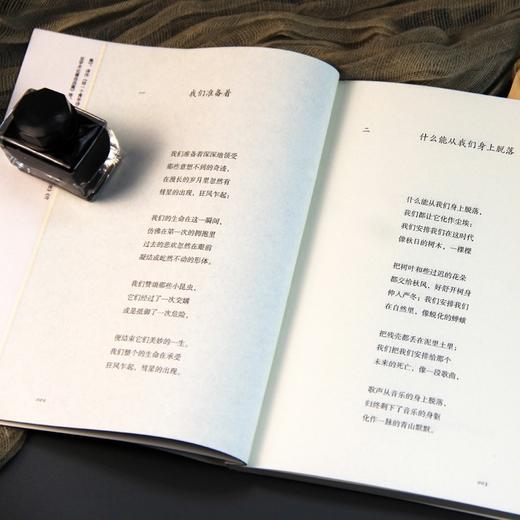 一
我们准备着
我们准备着深深地领受
那些意想不到的奇迹,
在漫长的岁月里忽然有
彗星的出现,狂风乍起:
我们的生命在这一瞬间,
仿佛在第一次的拥抱里
过去的悲欢忽然在眼前
凝结成屹然不动的形体。
我们赞颂那些小昆虫,
它们经过了一次交媾
或是抵御了一次危险,
便结束它们美妙的一生。
我们整个的生命在承受
狂风乍起,彗星的出现。
二
什么能从我们身上脱落
什么能从我们身上脱落,
我们都让它化作尘埃:
我们安排我们在这时代
像秋日的树木,一棵棵
把树叶和些过迟的花朵
都交给秋风,好舒开树身
伸入严冬;我们安排我们
在自然里,像蜕化的蝉蛾
把残壳都丢在泥里土里;
我们把我们安排给那个
未来的死亡,像一段歌曲,
歌声从音乐的身上脱落,
归终剩下了音乐的身躯
化作一脉的青山默默。